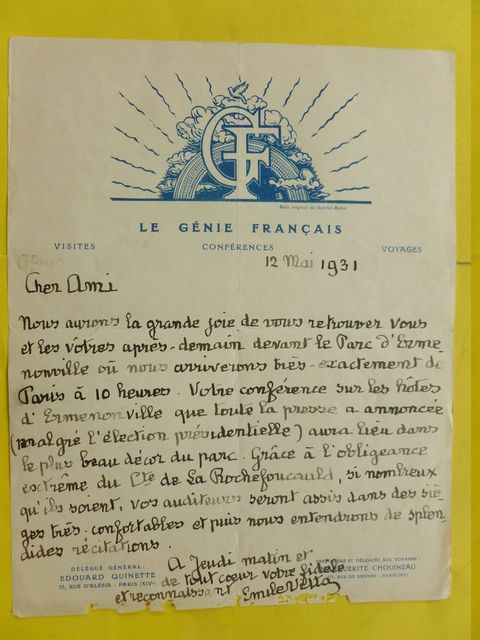 GF
Bois original de Gabriel-Belot
LE GÉNIE FRANÇAIS
VISITES CONFÉRENCES VOYAGES
12 Mai 1931
Cher Ami
Nous aurons la grande joie de vous retrouver vous
et les vôtres après-demain devant le Parc d'Erme-
nonville où nous arriverons très-exactement de
Paris à 10 heures. Votre conférence sur les hôtes
d'Ermenonville que toute la presse a annoncée
(malgré l'élection présidentielle) aura lieu dans
le plus beau décor du parc. Grâce à l'obligeance
extrême du Cte de La Rochefoucauld, si nombreux
qu'ils soient, vos auditeurs seront assis dans des siè-
ges très-confortables et puis nous entendrons de splen-
dides récitations.
A Jeudi matin et
de tout coeur votre fidèle
et reconnaissant Emile
DÉLÉGUÉ GÉNÉRAL:
EDOUARD QUINETTE
, RUE D'ALÉSIA - PARIS (XIVe)
ET DÉLÉGUÉE AUX VOYAGES
CHOUINEAU
, RUE DE RENNES - PARIS (VIe)